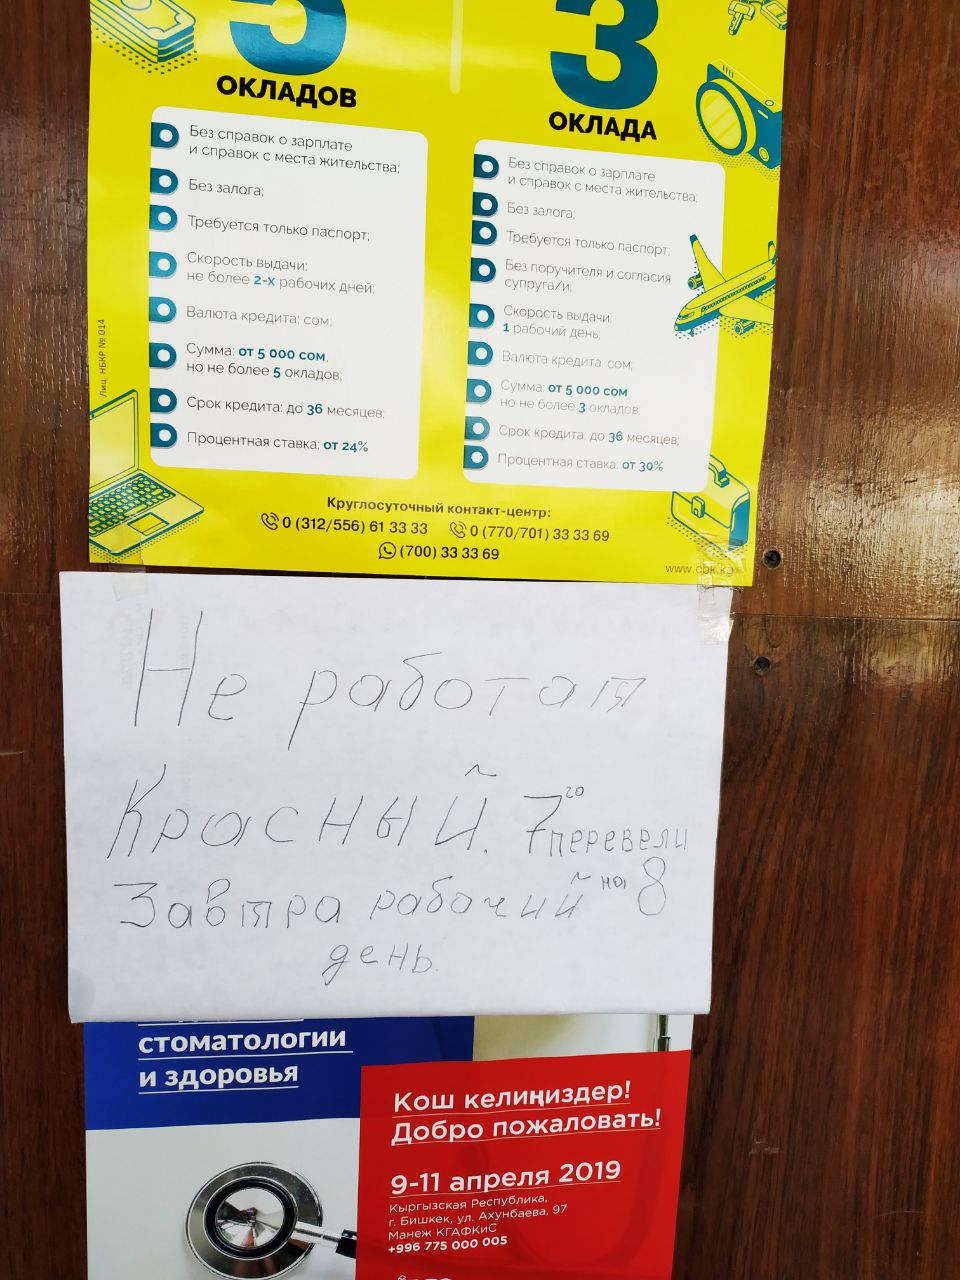 5
ОКЛАДОВ
Без справок о зарплате
и справок с места жительства;
Без залога;
Требуется только паспорт;
Скорость выдачи:
не более 2-х рабочих дней;
Валюта кредита: сом;
Сумма: от 5 000 сом,
но не более 5 окладов;
Срок кредита: до 36 месяцев;
Процентная ставка: от 24%
3
ОКЛАДА
Без справок о зарплате
и справок с места жительства;
Без залога;
Требуется только паспорт;
Без поручителя и согласия
супруга/и;
Скорость выдачи:
1 рабочий день;
Валюта кредита: сом;
Сумма: от 5 000 сом
но не более 3 окладов;
Срок кредита: до 36 месяцев;
Процентная ставка: от 30%
Лиц. НБКР № 014
Круглосуточный контакт-центр:
0 (312/556) 61 33 33 0 (770/701) 33 33 69
(700) 33 33 69
www.cbk.kg
Не работат
Красный. 7го перевели
на 8
Завтра рабочий
день.
стоматологии
и здоровья
Кош келиңиздер!
Добро пожаловать!
9-11 апреля 2019
Кыргызская Республика,
г. Бишкек, ул. Ахунбаева, 97
Манеж КГАФКиС
+996 775 000 005